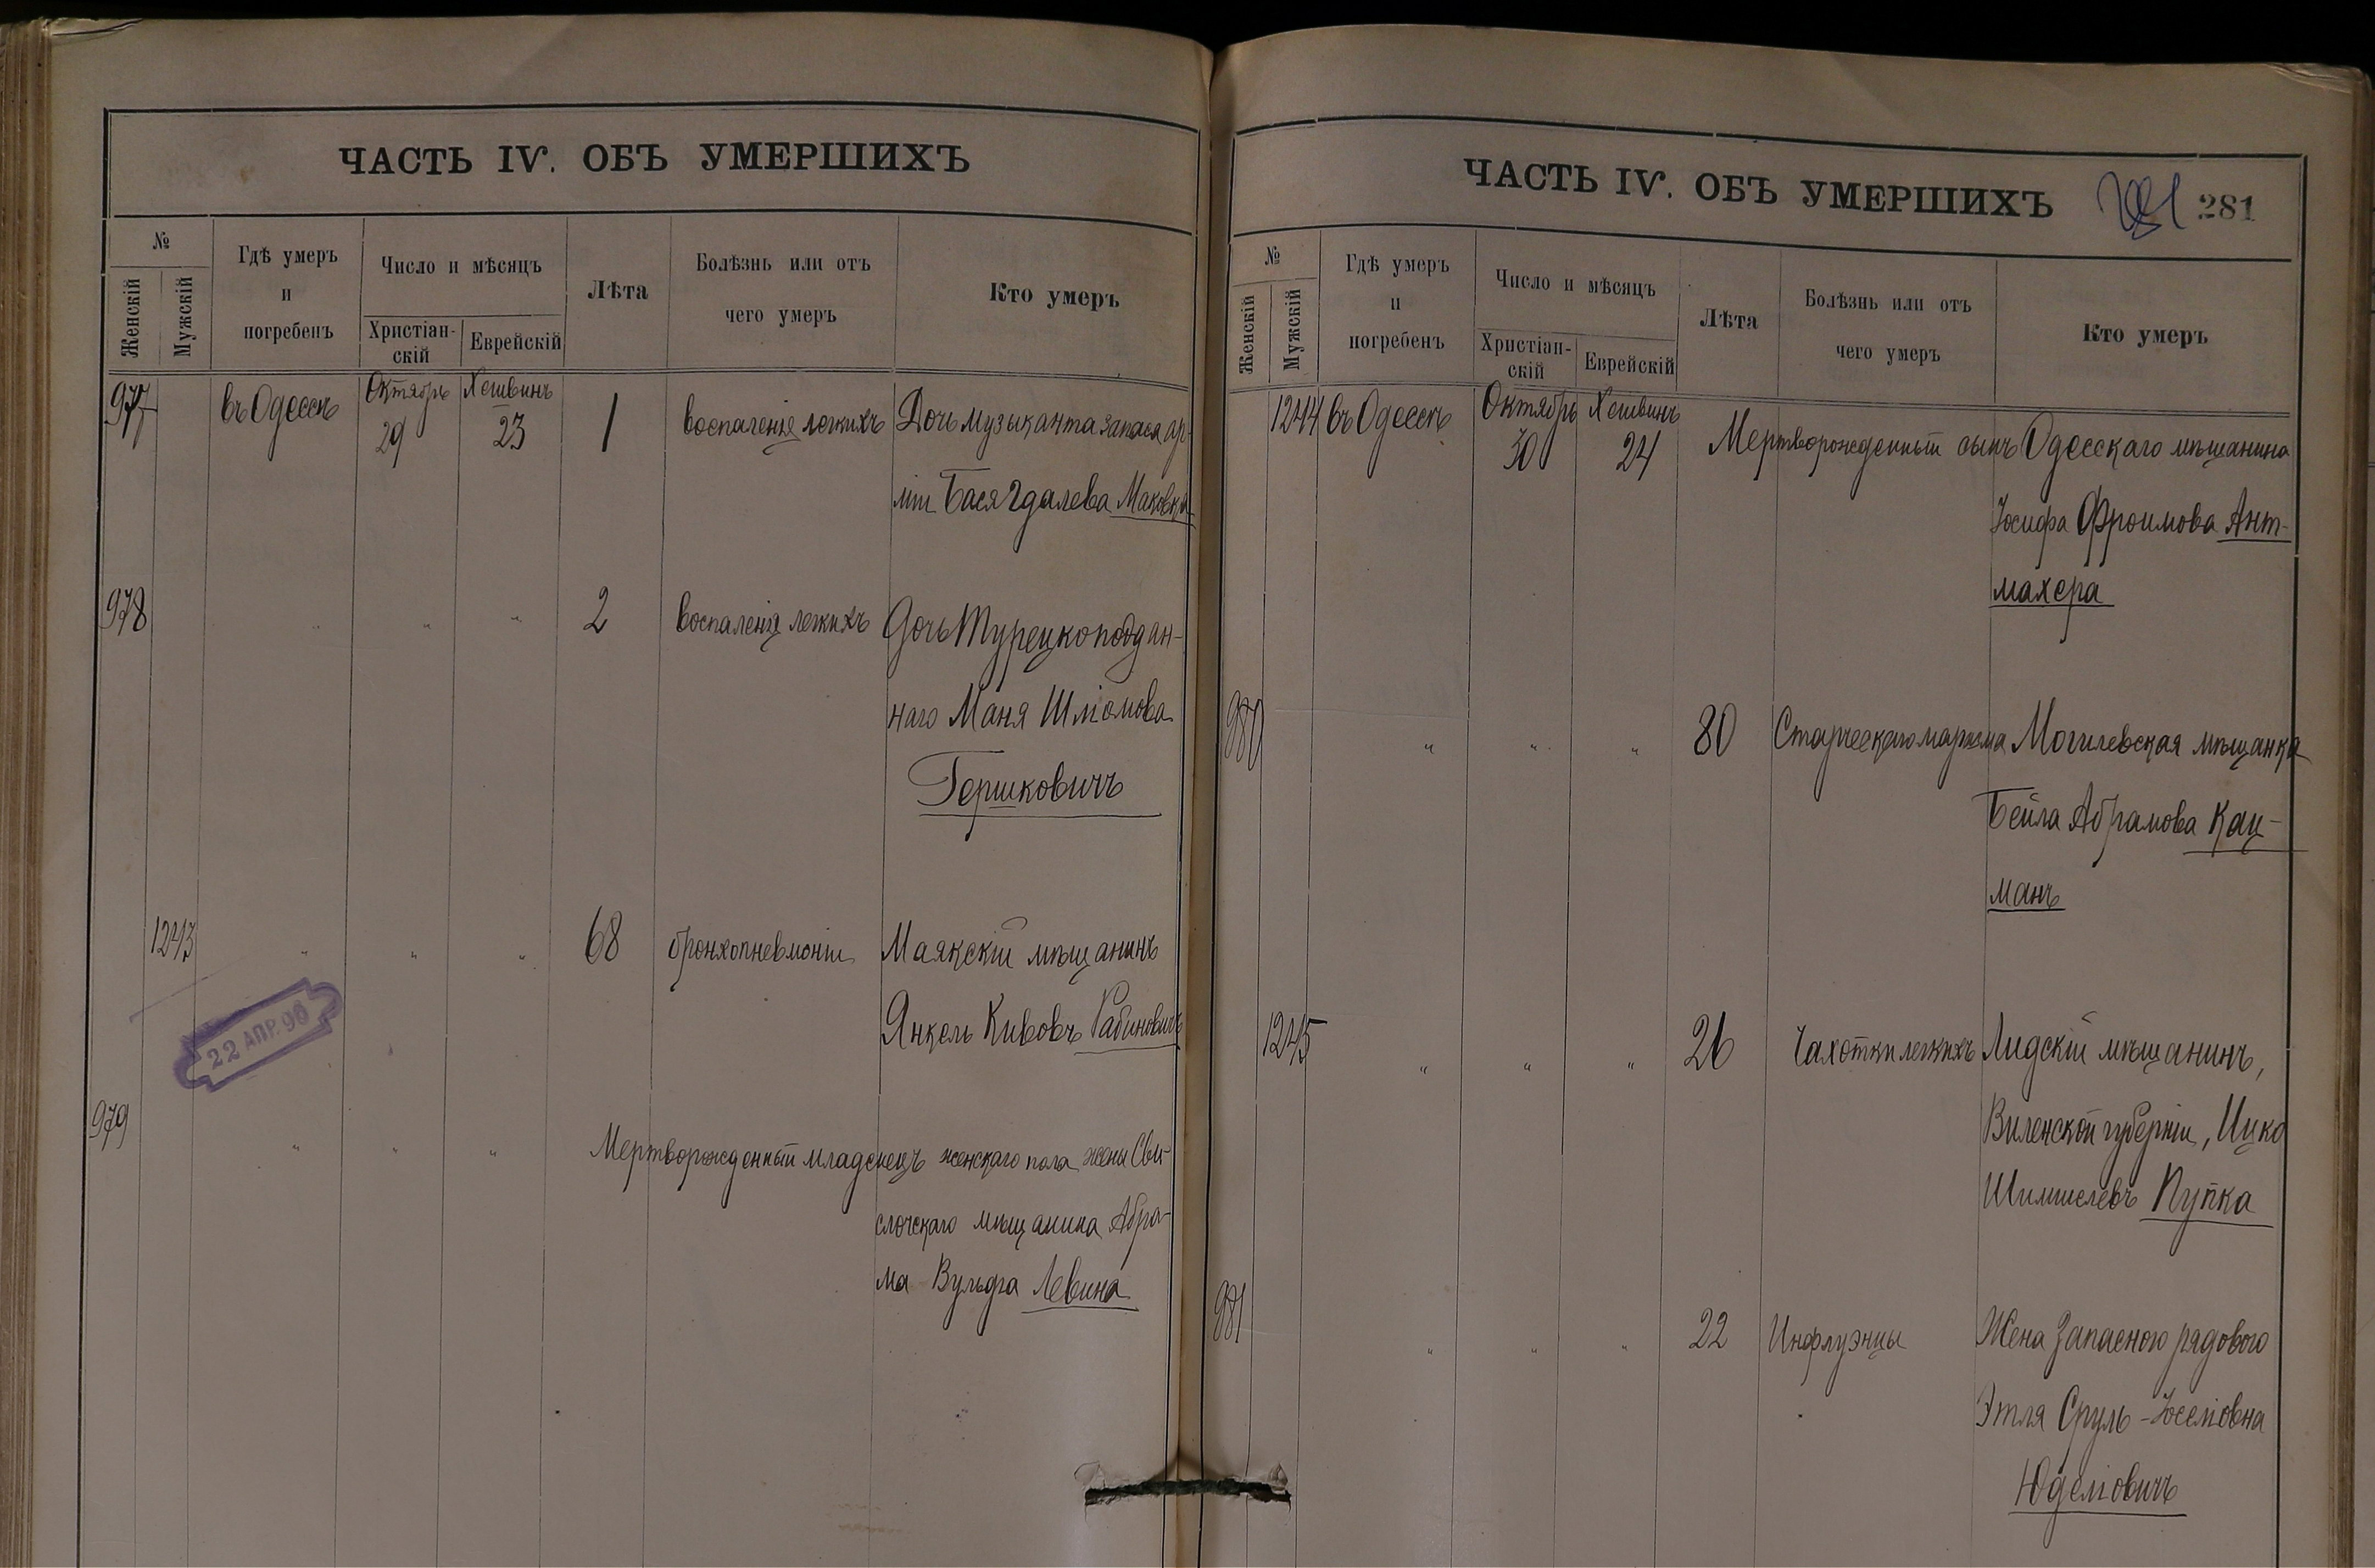 ЧАСТЬ IV. ОБЪ УМЕРШИХЪ
№
Женскій
Мужскій
Гдѣ умеръ
и
погребенъ
Число и мѣсяцъ
Христіан-
скій
Еврейскій
Лѣта
Болѣзнь или отъ
чего умеръ
Кто умеръ
977 въ Одессѣ Октябрь 29 Хешвинъ 23 1 воспаленія легкихъ Дочь музыканта запаса ар-
міи Бася Гдалева Маковка
978 " " " 2 воспаленія легкихъ Дочь Турецкоподдан-
наго Маня Шліомова
Гершковичъ
1243 " " " 68 бронхопневмоніи Маякскій мѣщанинъ
Янкель Кивовъ Рабиновичъ
22 АПР. 90
979 " " " Мертворожденный младенецъ женскаго пола жены Сви-
слочскаго мѣщанина Абра-
ма Вульфа Левина
ЧАСТЬ IV. ОБЪ УМЕРШИХЪ
281
№
Женскій
Мужскій
Гдѣ умеръ
и
погребенъ
Число и мѣсяцъ
Христіан-
скій
Еврейскій
Лѣта
Болѣзнь или отъ
чего умеръ
Кто умеръ
1244 въ Одессѣ Октябрь 30 Хешвинъ 24 Мертворожденный сынъ Одесскаго мѣщанина
Іосифа Фроимова Ант-
махера
980 " " " 80 Старческаго маразма Могилевская мѣщанка
Бейла Абрамова Кац-
манъ
1245 " " " 26 Чахотки легкихъ Лидскій мѣщанинъ,
Виленской губерніи, Ицко
Шимшелевъ Пупка
981 " " " 22 Инфлуэнцы Жена запасного рядового
Этля Сруль-Іоселіовна
Юделіовичъ